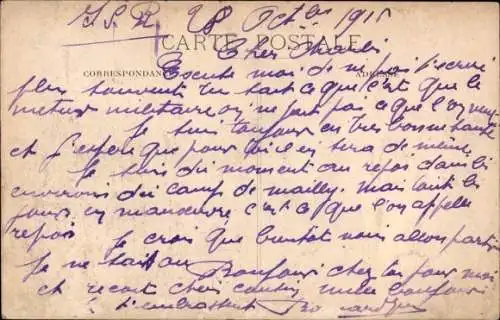 28 Octbre 1915
CARTE POSTALE
Cher Charles
CORRESPONDANCE
Excuse moi de ne pas t'ecrire
plus souvent tu sait ce que c'est que le
metier militaire on ne fait pas ce que l'on veut
Je suis toujours en tres bonne santé
et j'espere que pour toi il en sera de meme
Je suis du moment au repos dans les
environs du camp de mailly. mais tout les
jours en manœuvre c'est ce que l'on appelle
repos
Je crois que bientot nous allons partir
Je ne sait ou Bonjour chez toi pour moi
et recoit cher cousin mille bonjours